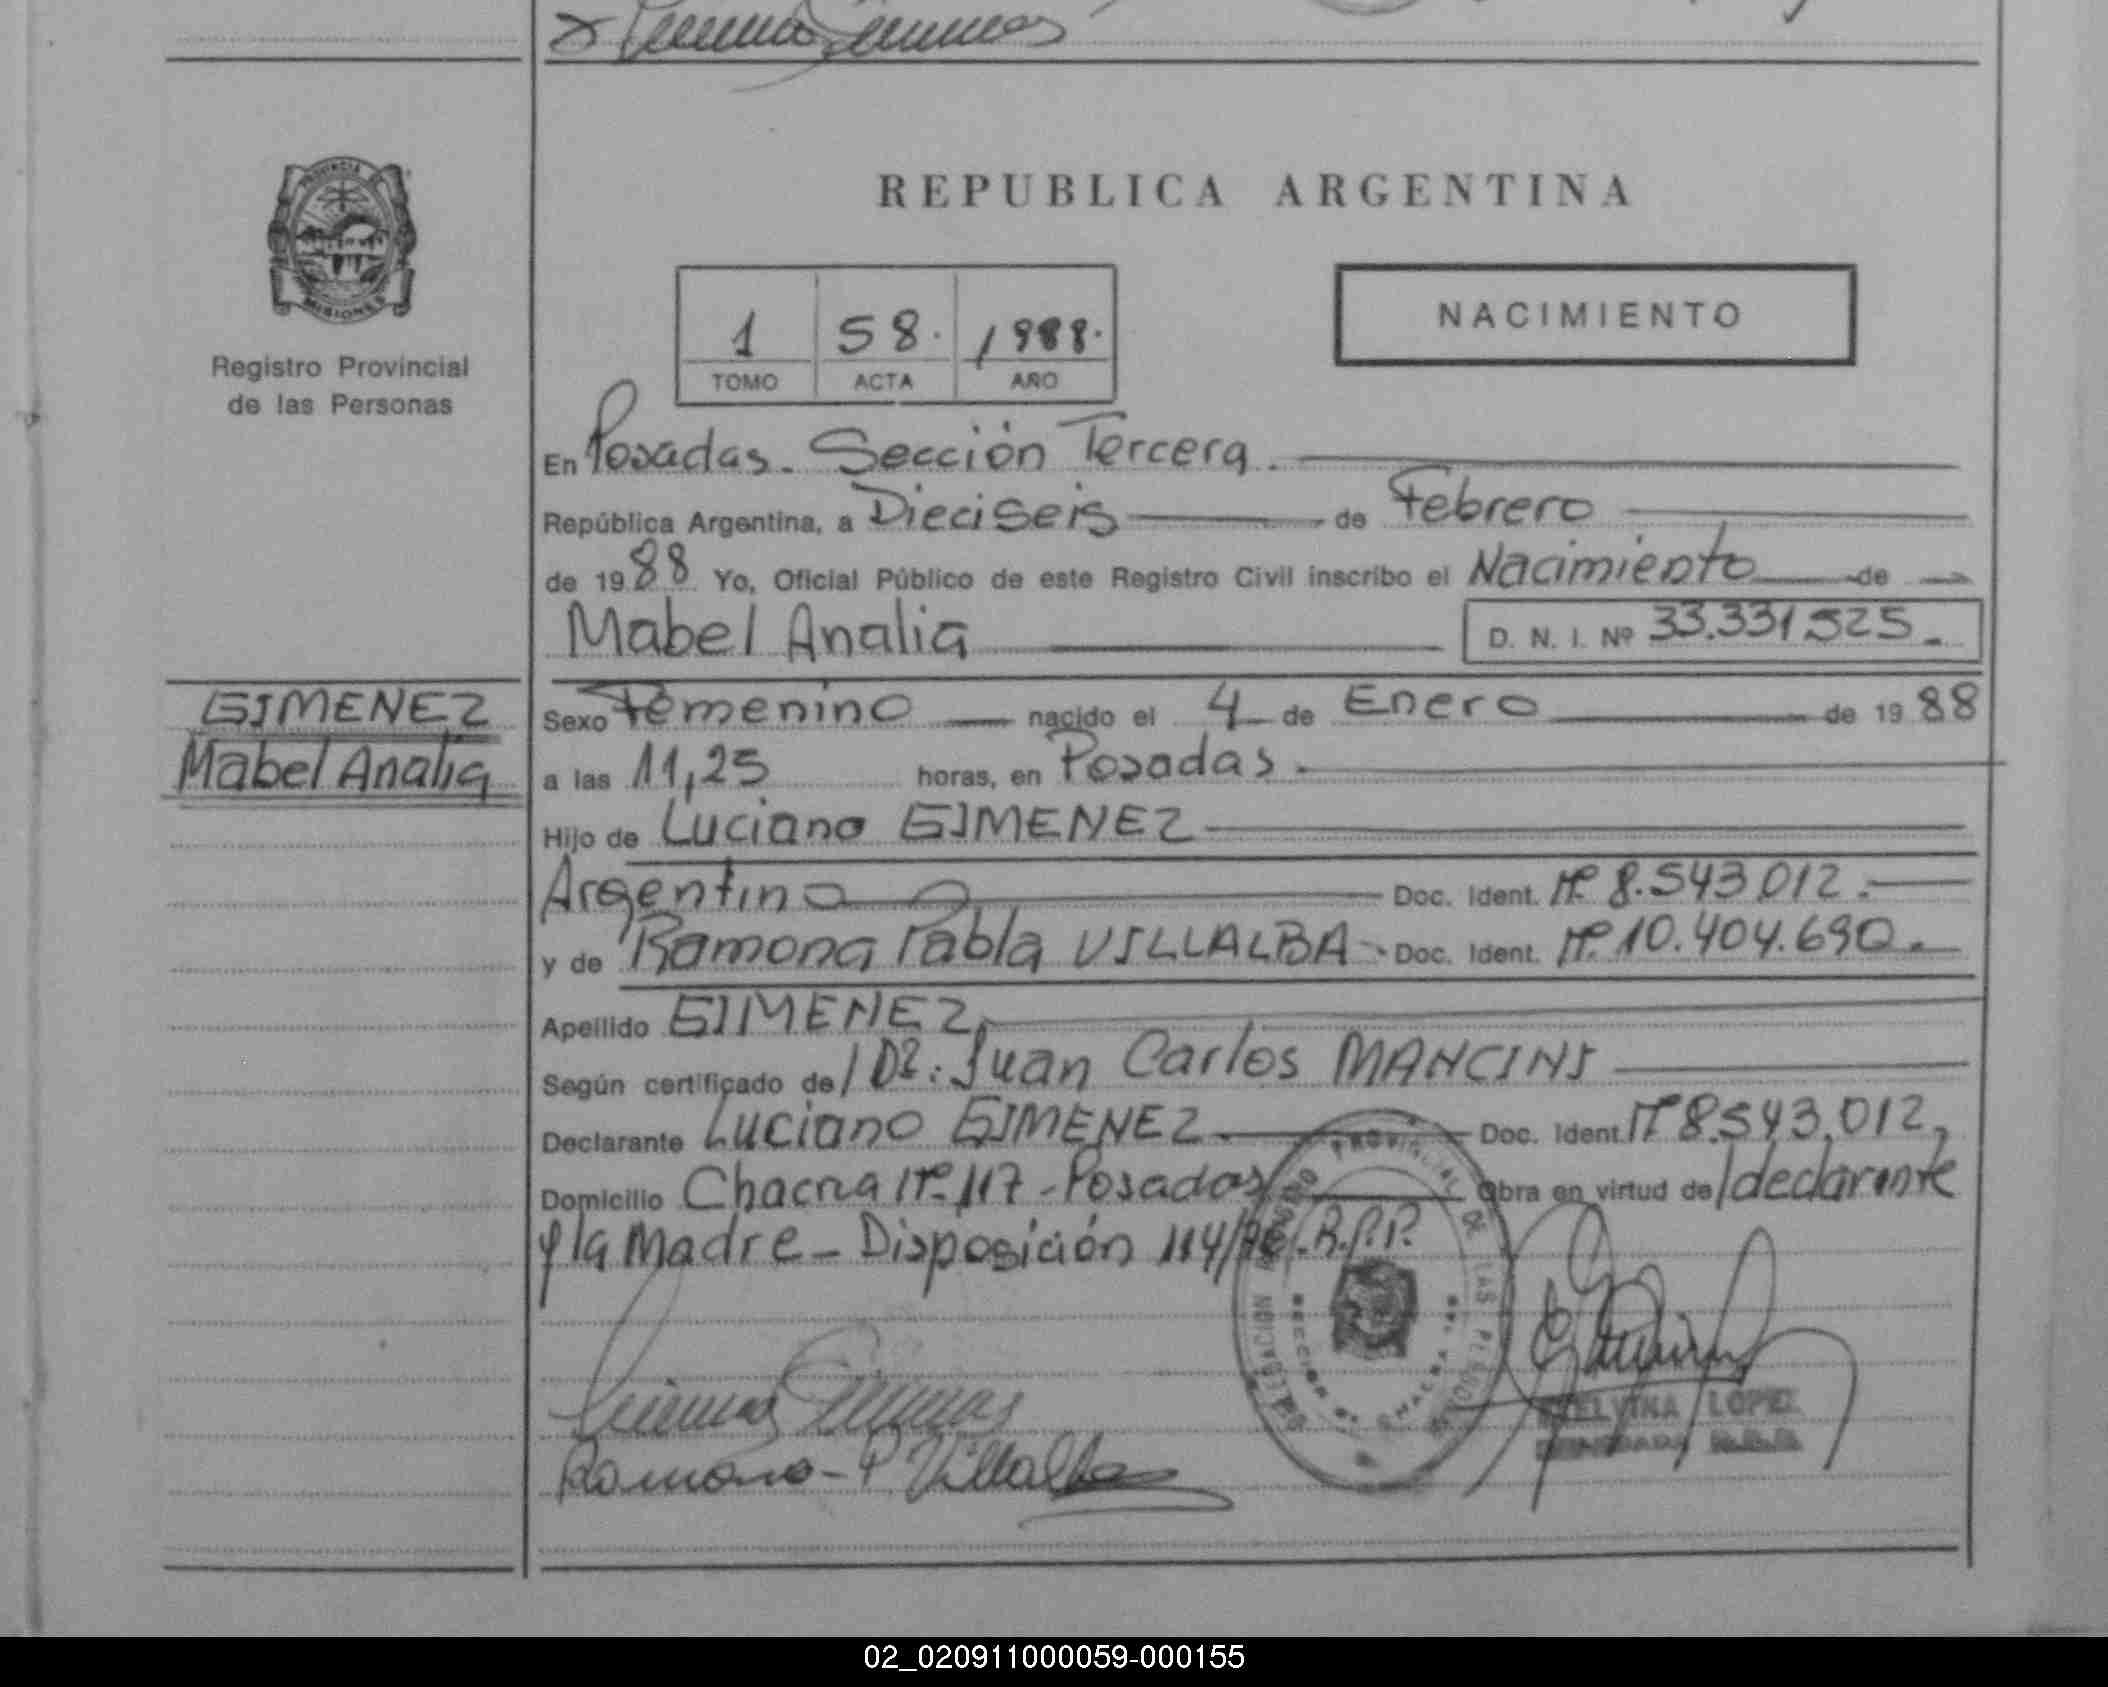 PROVINCIA
MISIONES
Registro Provincial
de las Personas
REPUBLICA ARGENTINA
1 58. 1988.
TOMO ACTA AÑO
NACIMIENTO
En Posadas. Sección Tercera.
República Argentina, a Dieciseis de Febrero
de 1988 Yo, Oficial Público de este Registro Civil inscribo el Nacimiento de
Mabel Analia D. N. I. Nº 33.331525.
GIMENEZ
Mabel Analia
Sexo Femenino nacido el 4 de Enero de 1988
a las 11,25 horas, en Posadas.
Hijo de Luciano GIMENEZ
Argentino Doc. Ident. Nº 8.543.012.
y de Ramona Pabla VILLALBA Doc. Ident. Nº 10.404.690.
Apellido GIMENEZ
Según certificado de/ Dr: Juan Carlos MANCINI
Declarante Luciano GIMENEZ Doc. Ident. Nº 8.543.012,
Domicilio Chacra Nº 117 - Posadas Obra en virtud de/ declarante
y la Madre - Disposición 114/ R.P.P.
DELEGACION REGISTRO PROVINCIAL DE LAS PERSONAS
Ramona P Villalba
LOPEZ
02_020911000059-000155